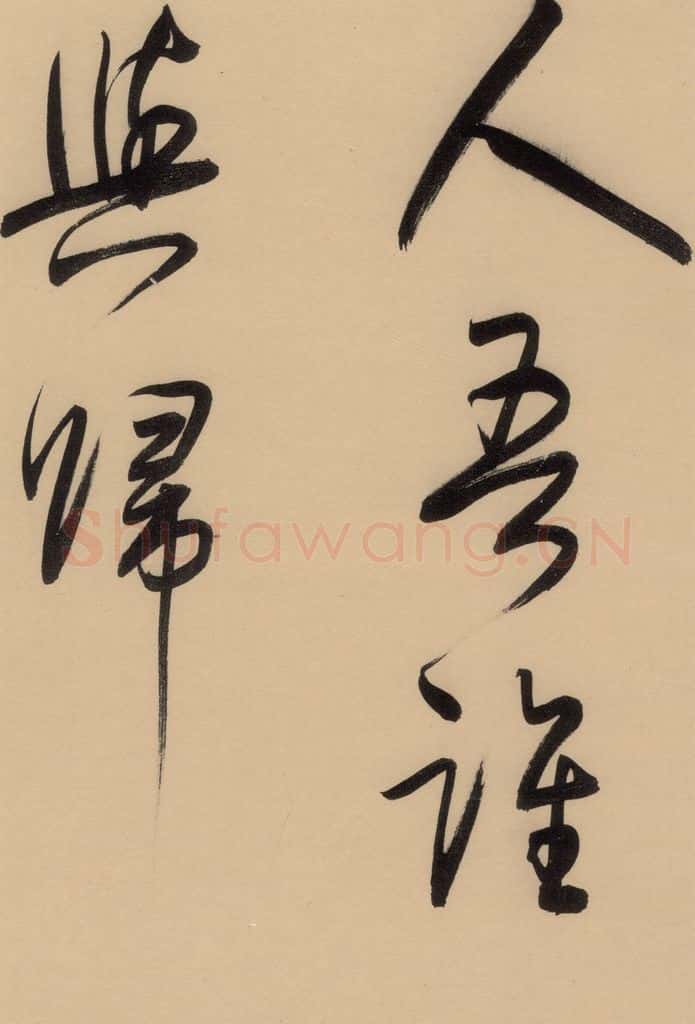 人吾誰
與歸
Shufawang.CN